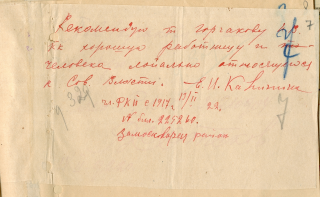 Рекомендую т. Горчакову
как хорошую работницу и
человека лояльно относящегося
к Сов Власти. — Е. И. Ка
чл. РКП с 1917. 17/II 22.
№ бил. 224260.
Замоскворец район